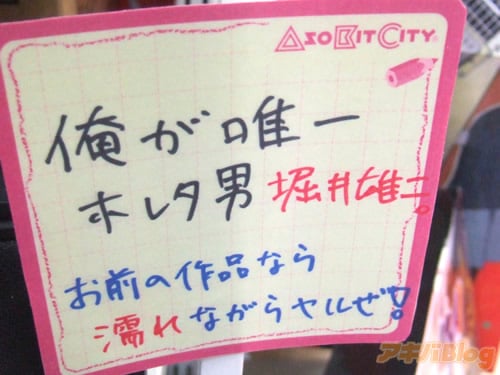 AsoBitCity
俺が唯一
ホレタ男 堀井雄二。
お前の作品なら
濡れながらヤルぜ!
アキバBlog